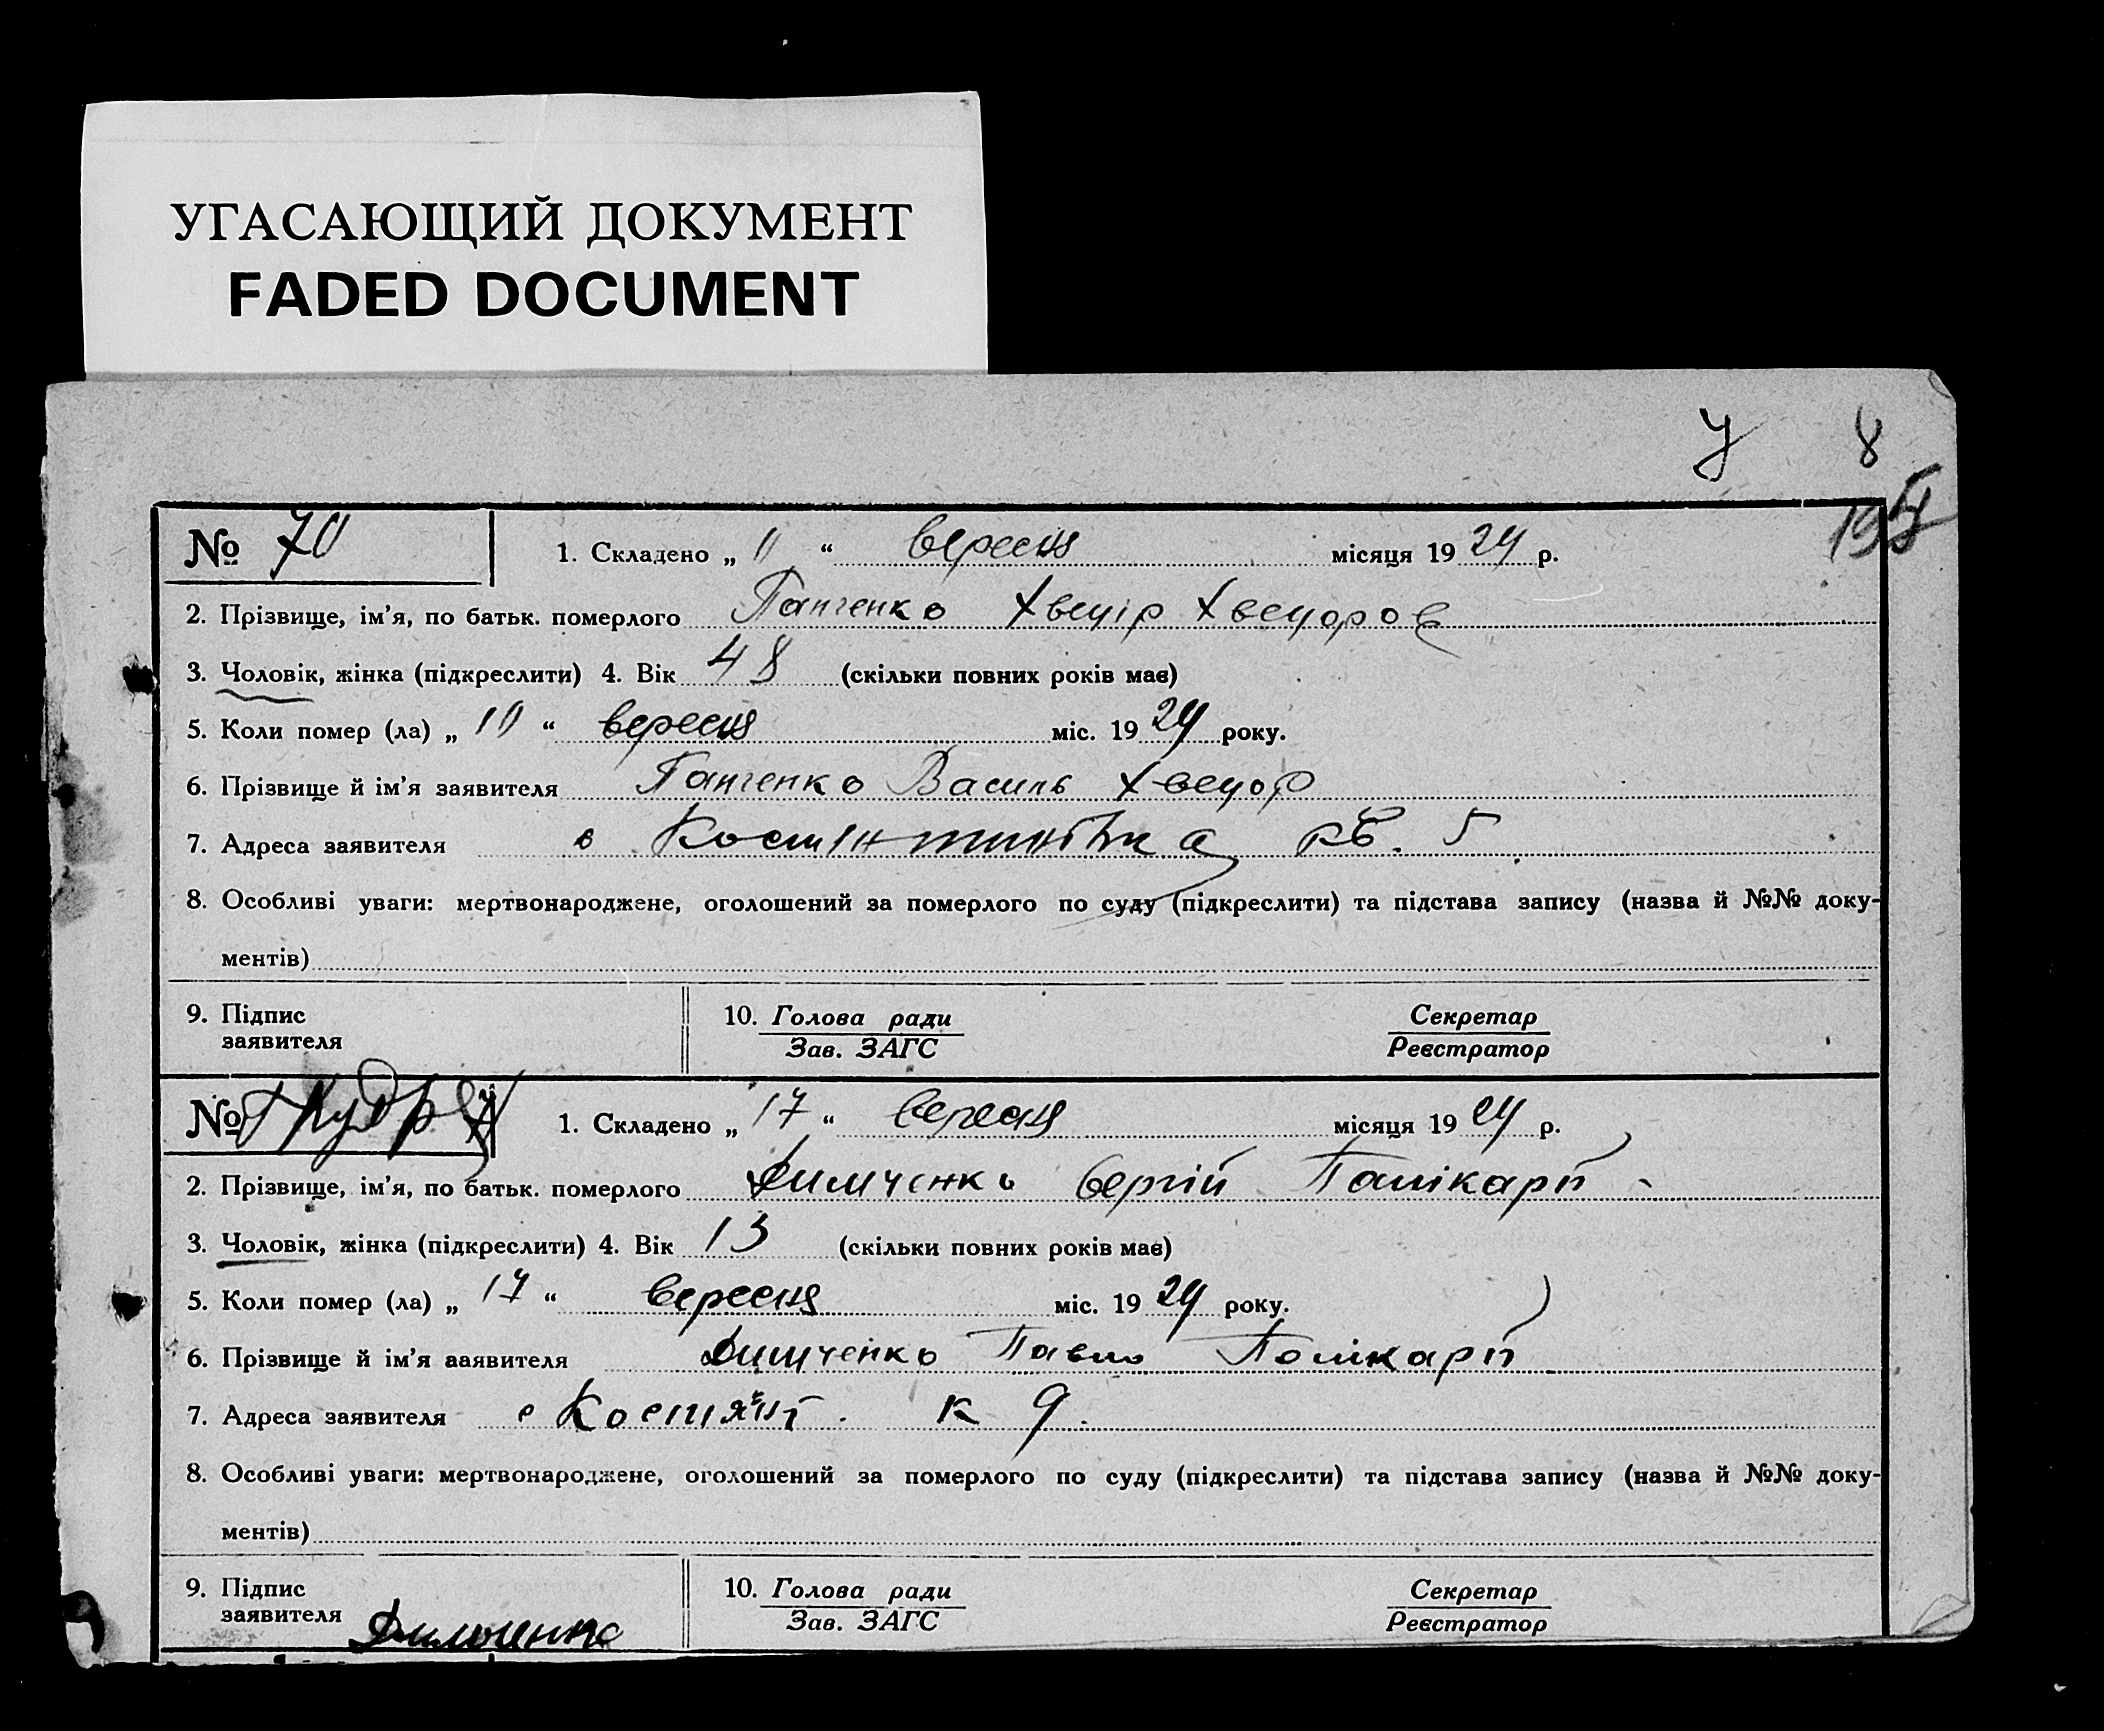 УГАСАЮЩИЙ ДОКУМЕНТ
FADED DOCUMENT
У 8
№ 70 1. Складено „ 11 “ вересня місяця 1924 р.
2. Прізвище, ім’я, по батьк. померлого Панченко Хведір Хведоров
3. Чоловік, жінка (підкреслити) 4. Вік 48 (скільки повних років має)
5. Коли помер (ла) „ 10 “ вересня міс. 1924 року.
6. Прізвище й ім’я заявителя Панченко Василь Хведор
7. Адреса заявителя в кв. 5
8. Особливі уваги: мертвонароджене, оголошений за померлого по суду (підкреслити) та підстава запису (назва й №№ доку-
ментів)
9. Підпис 10. Голова ради Секретар
заявителя Зав. ЗАГС Реєстратор
№ 1. Складено „ 17 “ вересня місяця 1924 р.
2. Прізвище, ім’я, по батьк. померлого Димченко Сергій Полікарп
3. Чоловік, жінка (підкреслити) 4. Вік 13 (скільки повних років має)
5. Коли помер (ла) „ 17 “ вересня міс. 1924 року.
6. Прізвище й ім’я заявителя Димченко Павло Полікарп
7. Адреса заявителя с Костянт. к 9.
8. Особливі уваги: мертвонароджене, оголошений за померлого по суду (підкреслити) та підстава запису (назва й №№ доку-
ментів)
9. Підпис 10. Голова ради Секретар
заявителя Димченко Зав. ЗАГС Реєстратор